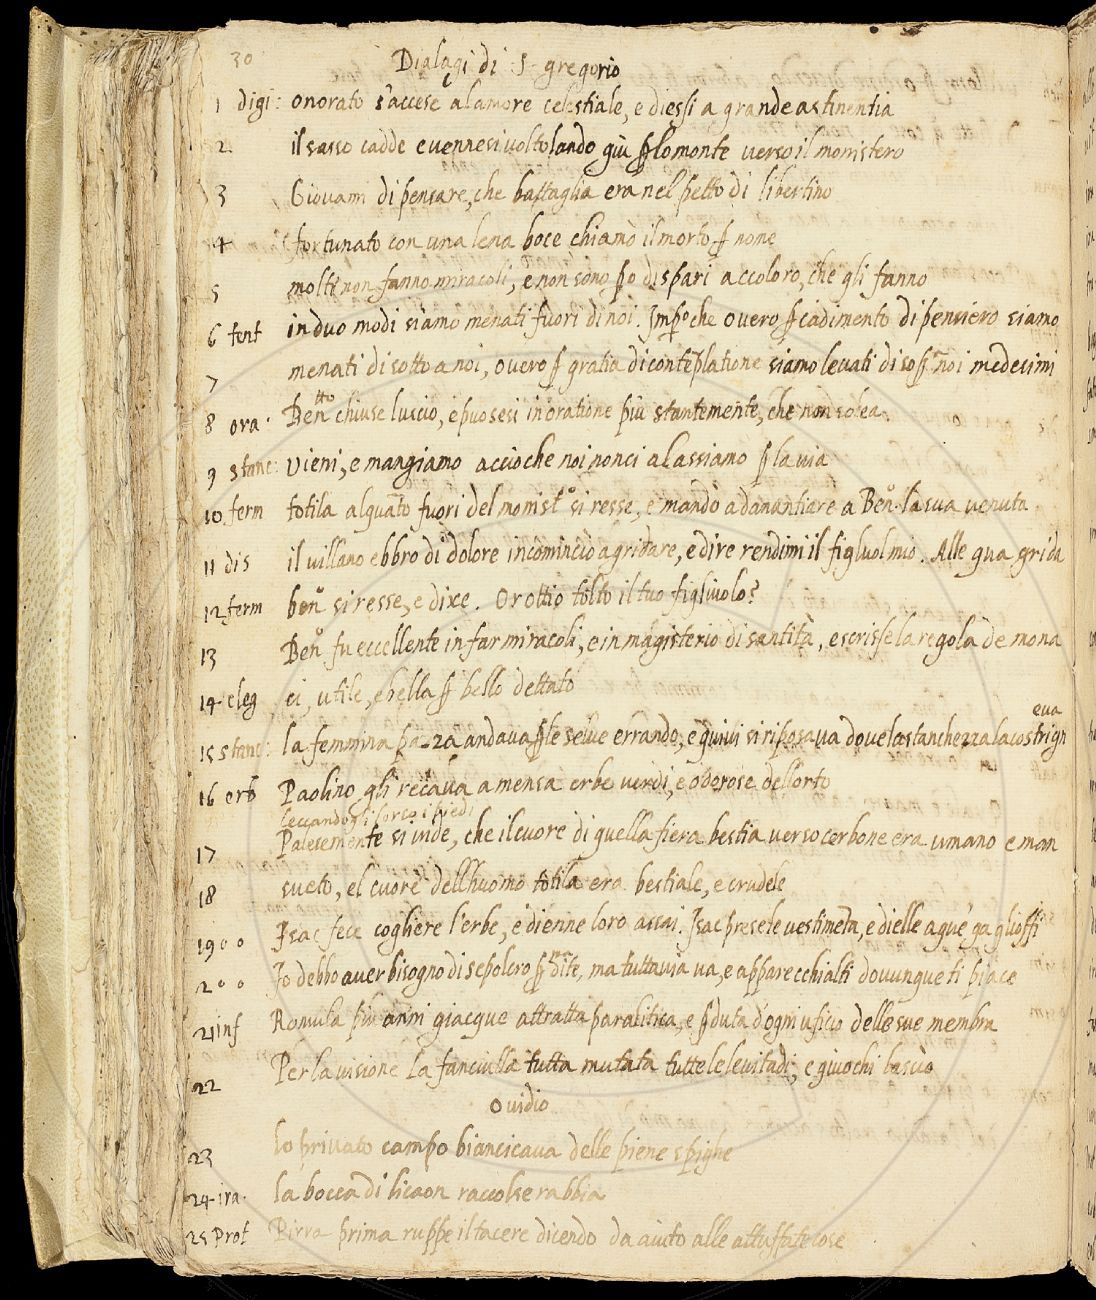 30
Dialagi di S gregorio
1 digi: onorato s'accese alamore celestiale, e diessi a grande astinentia
2 il sasso cadde e vennesi voltolando giù ꝑlomonte verso il monistero
3 Giovanni di pensare, che battaglia era nel petto di libertino
4 fortunato con una lena boce chiamò il morto ꝑ nome
5 molti non fanno miracoli, e non sono ꝑo dispari accoloro, che gli fanno
6 tent in duo modi siamo menati fuori di noi. Imꝑoche overo ꝑ cadimento di pensiero siamo
7 menati di sotto a noi, overo ꝑ gratia di conteplatione siamo levati di soꝑ noi medesimi
8 ora. Bentto chiuse luscio, e puosesi in oratione più stantemente, che non solea.
9 stanc: vieni, e mangiamo accioche noi nonci alassiamo ꝑ la via
10 ferm totila alquāto fuori del monisto si resse, e mandò adanuntiare a Beno la sua venuta
11 dis il villano ebbro di dolore incominciò agridare, e dire rendimi il figluol mio. Alle qua grida
12 ferm beno si resse, e dixe. Or ottio tolto il tuo figlivolo?
13 Beno fu eccellente in far miracoli, e in magisterio di santità, e scrisse la regola de mona
14 eleg ci, utile, e bella ꝑ bello dettato
15 stanc: la femmina pazza andava ꝑle selve errando, e quivi si riposava dove la stanchezza la costrign
eva
16 erb Paolino gli recava a mensa erbe verdi, e odorose dellorto
leccandogli l'orso i piedi
17 Palesemente si vide, che il cuore di quella fiera bestia verso cerbone era umano e man
18 sueto, el cuore dellhuomo totila era bestiale, e crudele
19 o o Isac fece cogliere l'erbe, e dienne loro assai. Isac prese le vestimeta, e dielle aque gaglioffi
20 o Io debbo aver bisogno di sepolcro ꝑ dite, ma tuttavia va, e apparecchialti dovunque ti piace
21 inf Romula più anni giacque attratta paralitica, e ꝑduta d'ogni uficio delle sue membra
22 Per la visione la fanciulla tutta mutata tutte le levitadi, e giuochi lasciò
ovidio
23 lo privato campo biancicava delle piene spighe
24 ira. la bocca di licaon raccolse rabbia
25 Prot Pirra prima ruppe il tacere dicendo da aiuto alle attuffate cose